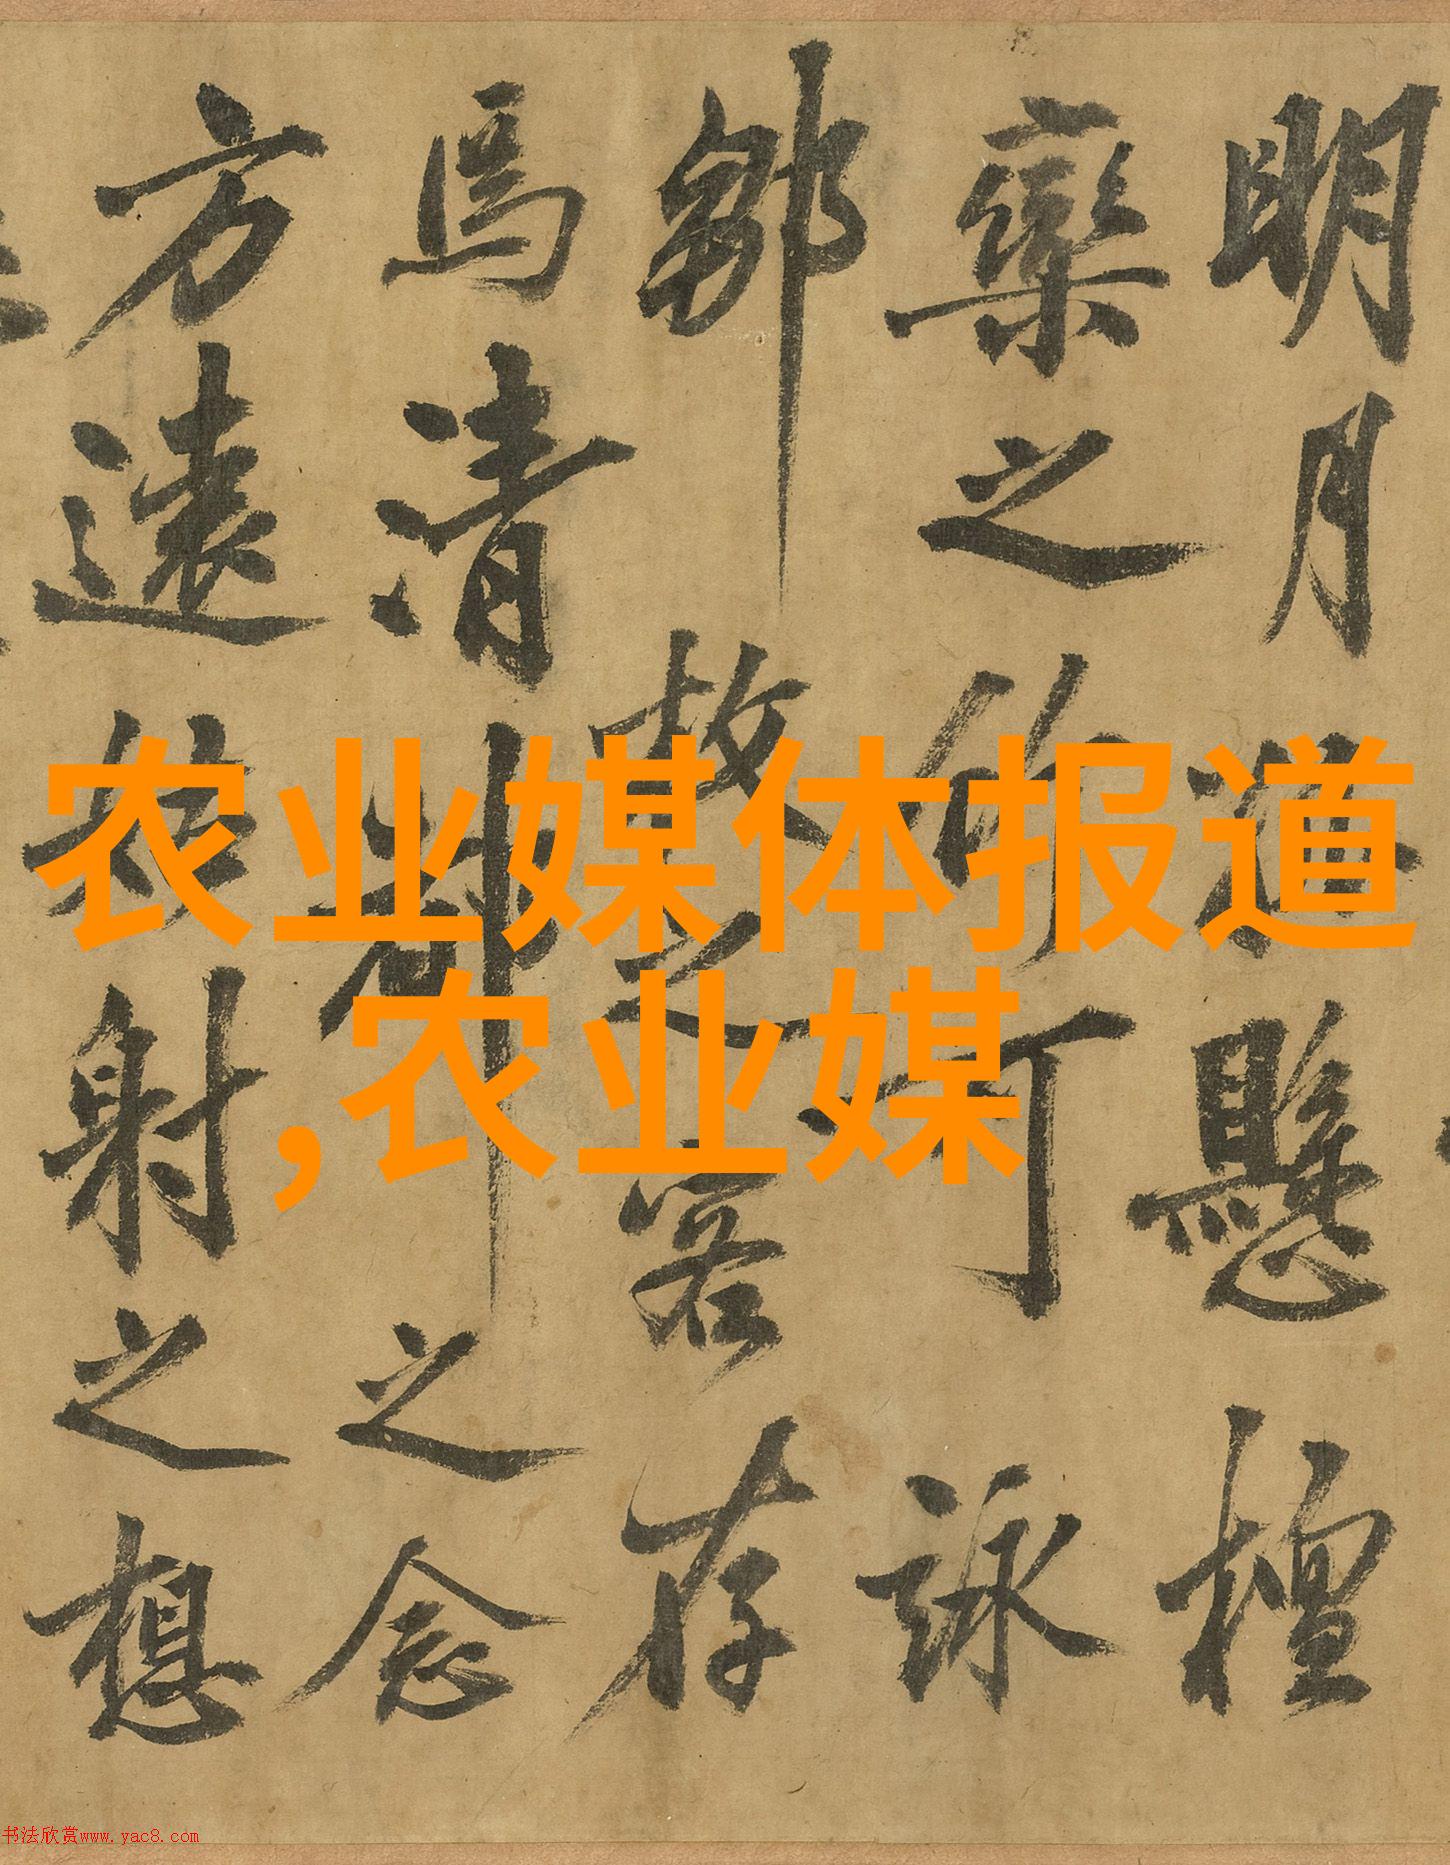 明月懸檀
欒之竹可詠
鄒枚之客存
焉清之念
方遠姑射之想
农业媒体报道
,农业媒
书法欣赏www.yac8.com